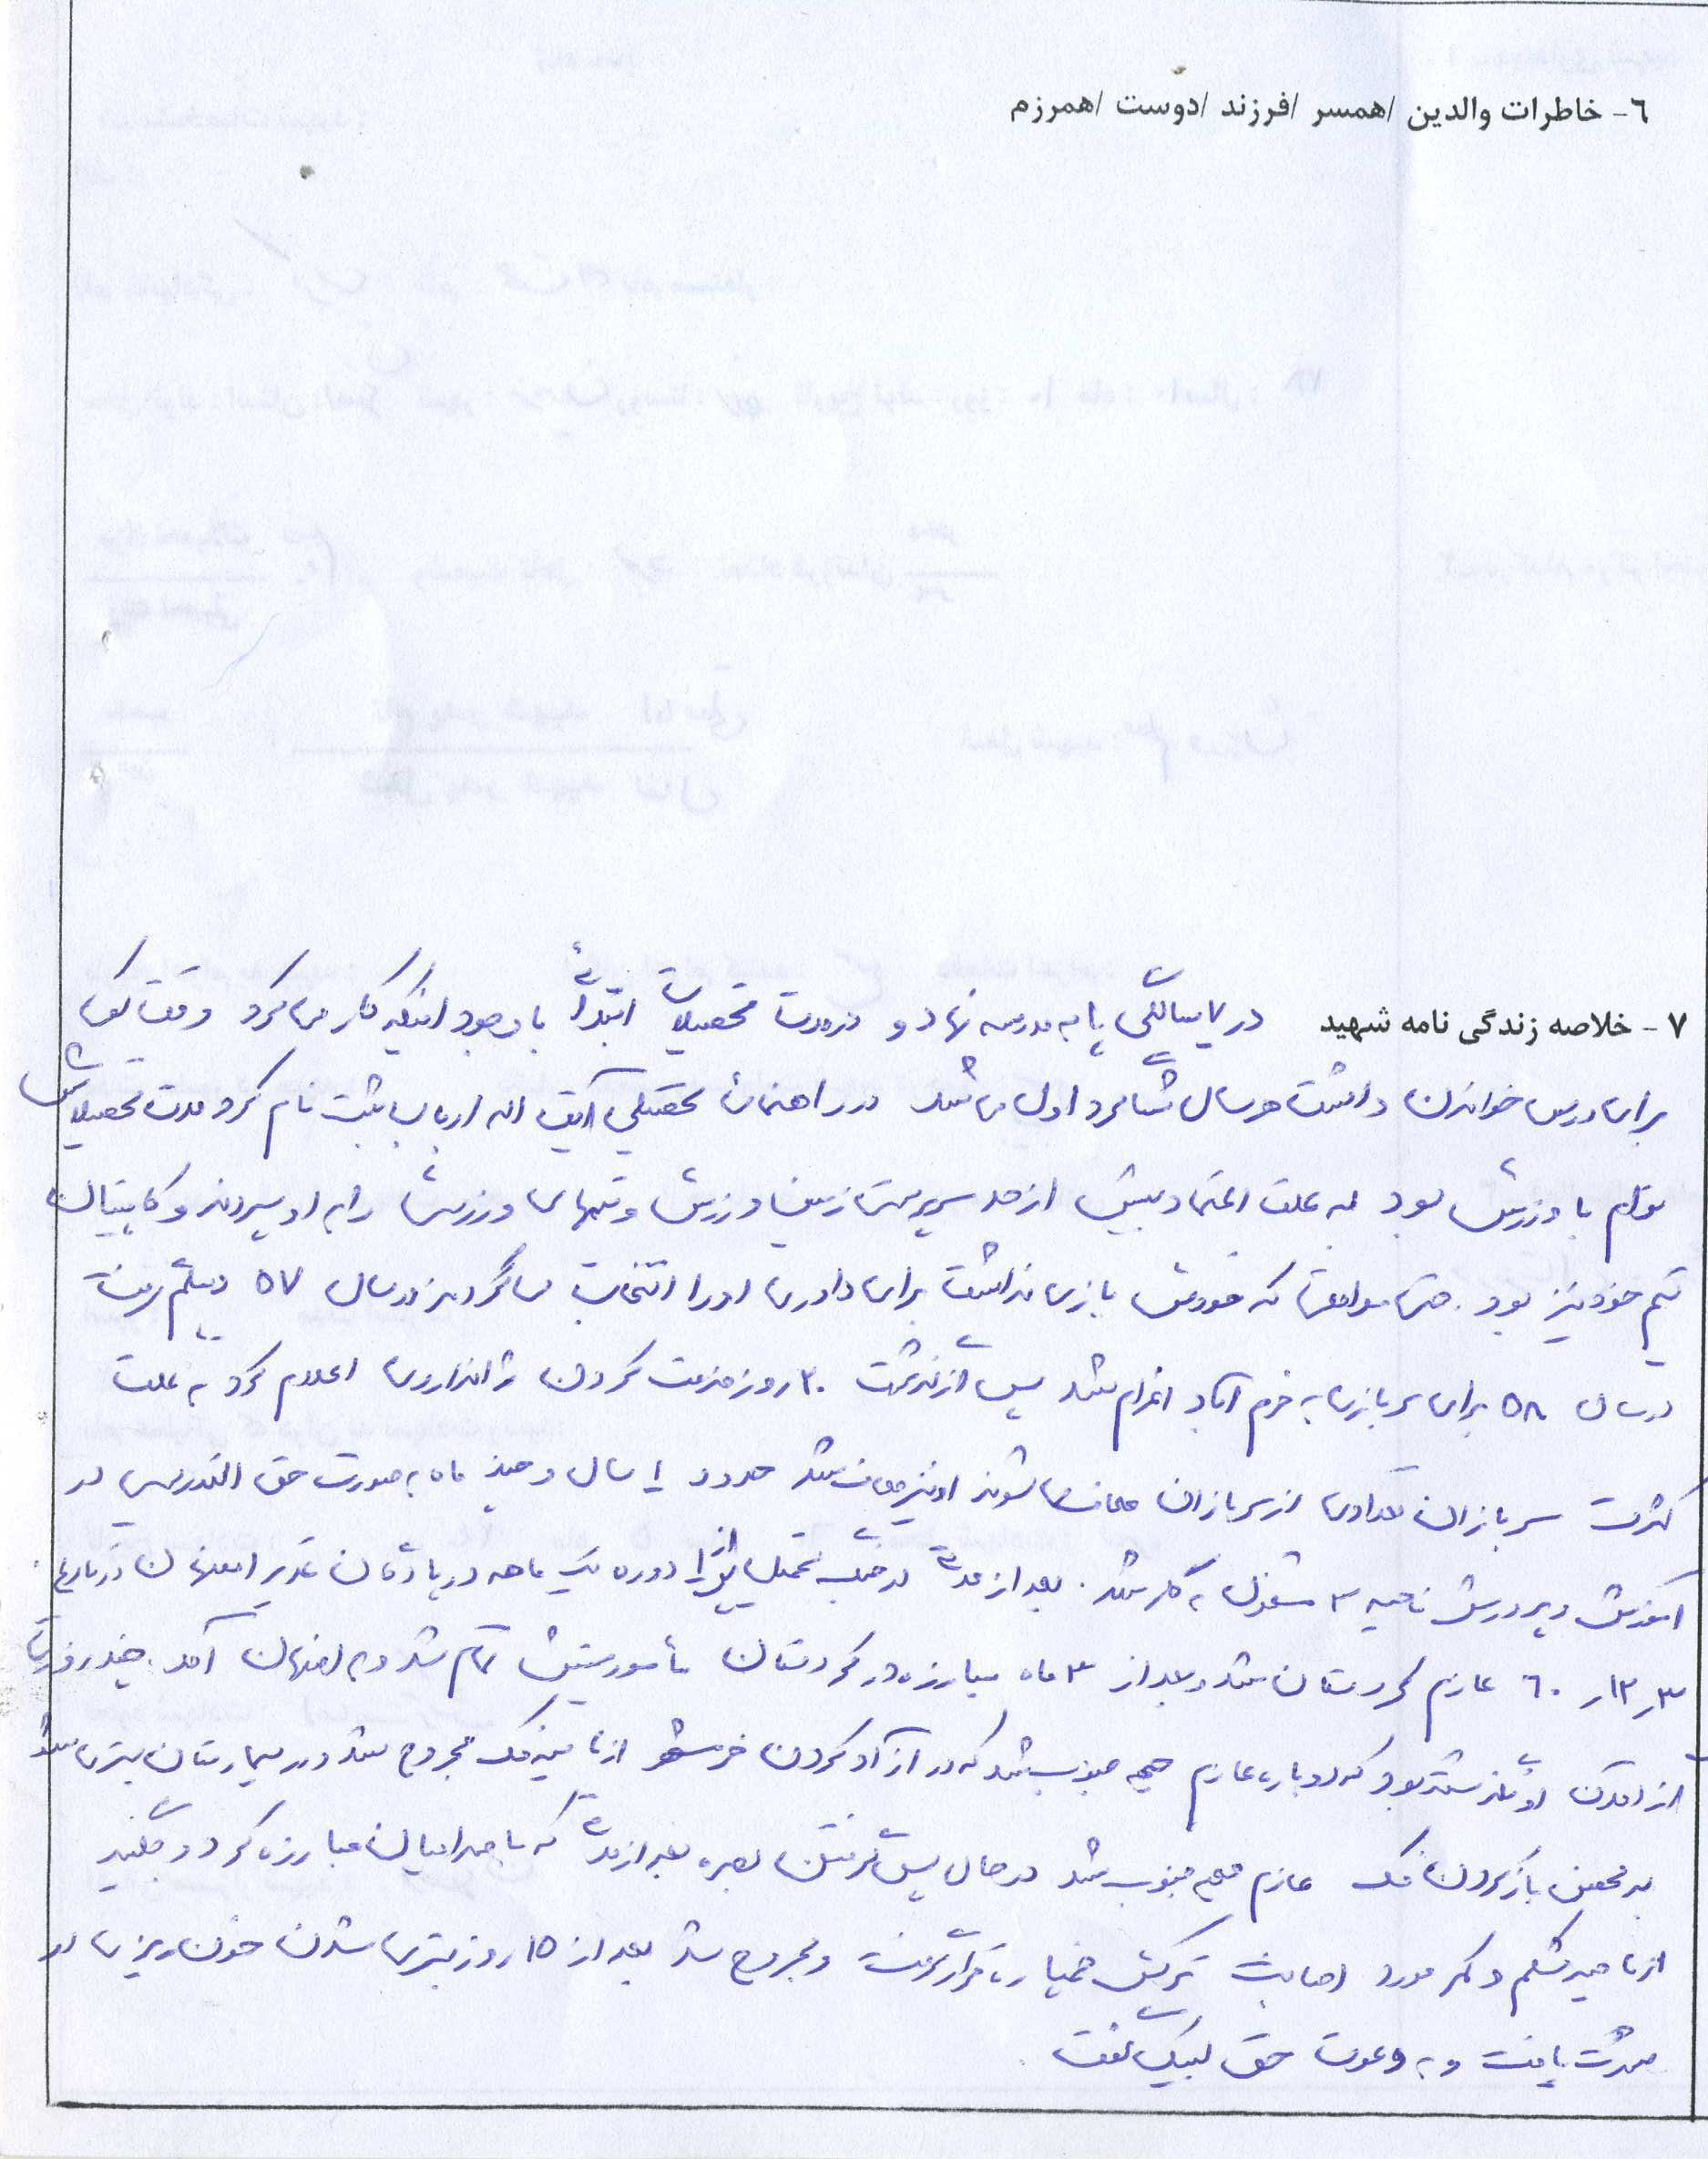 ٦- خاطرات والدین /همسر /فرزند /دوست /همرزم
٧- خلاصه زندگی نامه شهید در ٧ سالگی پا به مدرسه نهاد و در مدت تحصیلات ابتدائی با وجود اینکه کار می کرد و وقت کمی
برای درس خواندن داشت هر سال شاگرد اول می شد در راهنمائی تحصیلی آیت اله ارباب ثبت نام کرد مدت تحصیلاتش
توام با ورزش بود به علت اعتماد بیش از حد سرپرستی زمین ورزش و تیمهای ورزشی را به او سپردند و کاپیتان
تیم خود نیز بود. حتی مواقعی که خودش بازی نداشت برای داوری او را انتخاب می کردند در سال ٥٧ دیپلم گرفت
در سال ٥٨ برای سربازی به خرم آباد اعزام شد پس از گذشت ٢٠ روز خدمت کردن ژاندارمری اعلام کرد به علت
کثرت سربازان تعدادی از سربازان معاف می شوند او نیز معاف شد حدود ١ سال و چند ماه به صورت حق التدریس در
آموزش و پرورش ناحیه ٣ مشغول به کار شد. بعد از مدتی در جنگ تحمیلی پس از دوره یک ماهه در پادگان غدیر اصفهان در تاریخ
٦٠ عازم کردستان شد و بعد از ٣ ماه مبارزه در کردستان مأموریتش تمام شد و به اصفهان آمد. چند روزی
از آمدن او نگذشته بود که دوباره عازم جبهه جنوب شد که در آزاد کردن خرمشهر از ناحیه فک مجروح شد و در بیمارستان بستری شد
به محض باز کردن فک عازم جبهه جنوب شد در حال پس گرفتن بصره بعد از مدتی که با صدامیان مبارزه کرد و جنگید
از ناحیه شکم و کمر مورد اصابت ترکش خمپاره قرار گرفت و مجروح شد بعد از ١٥ روز بستری شدن خون ریزی او
شدت یافت و به دعوت حق لبیک گفت